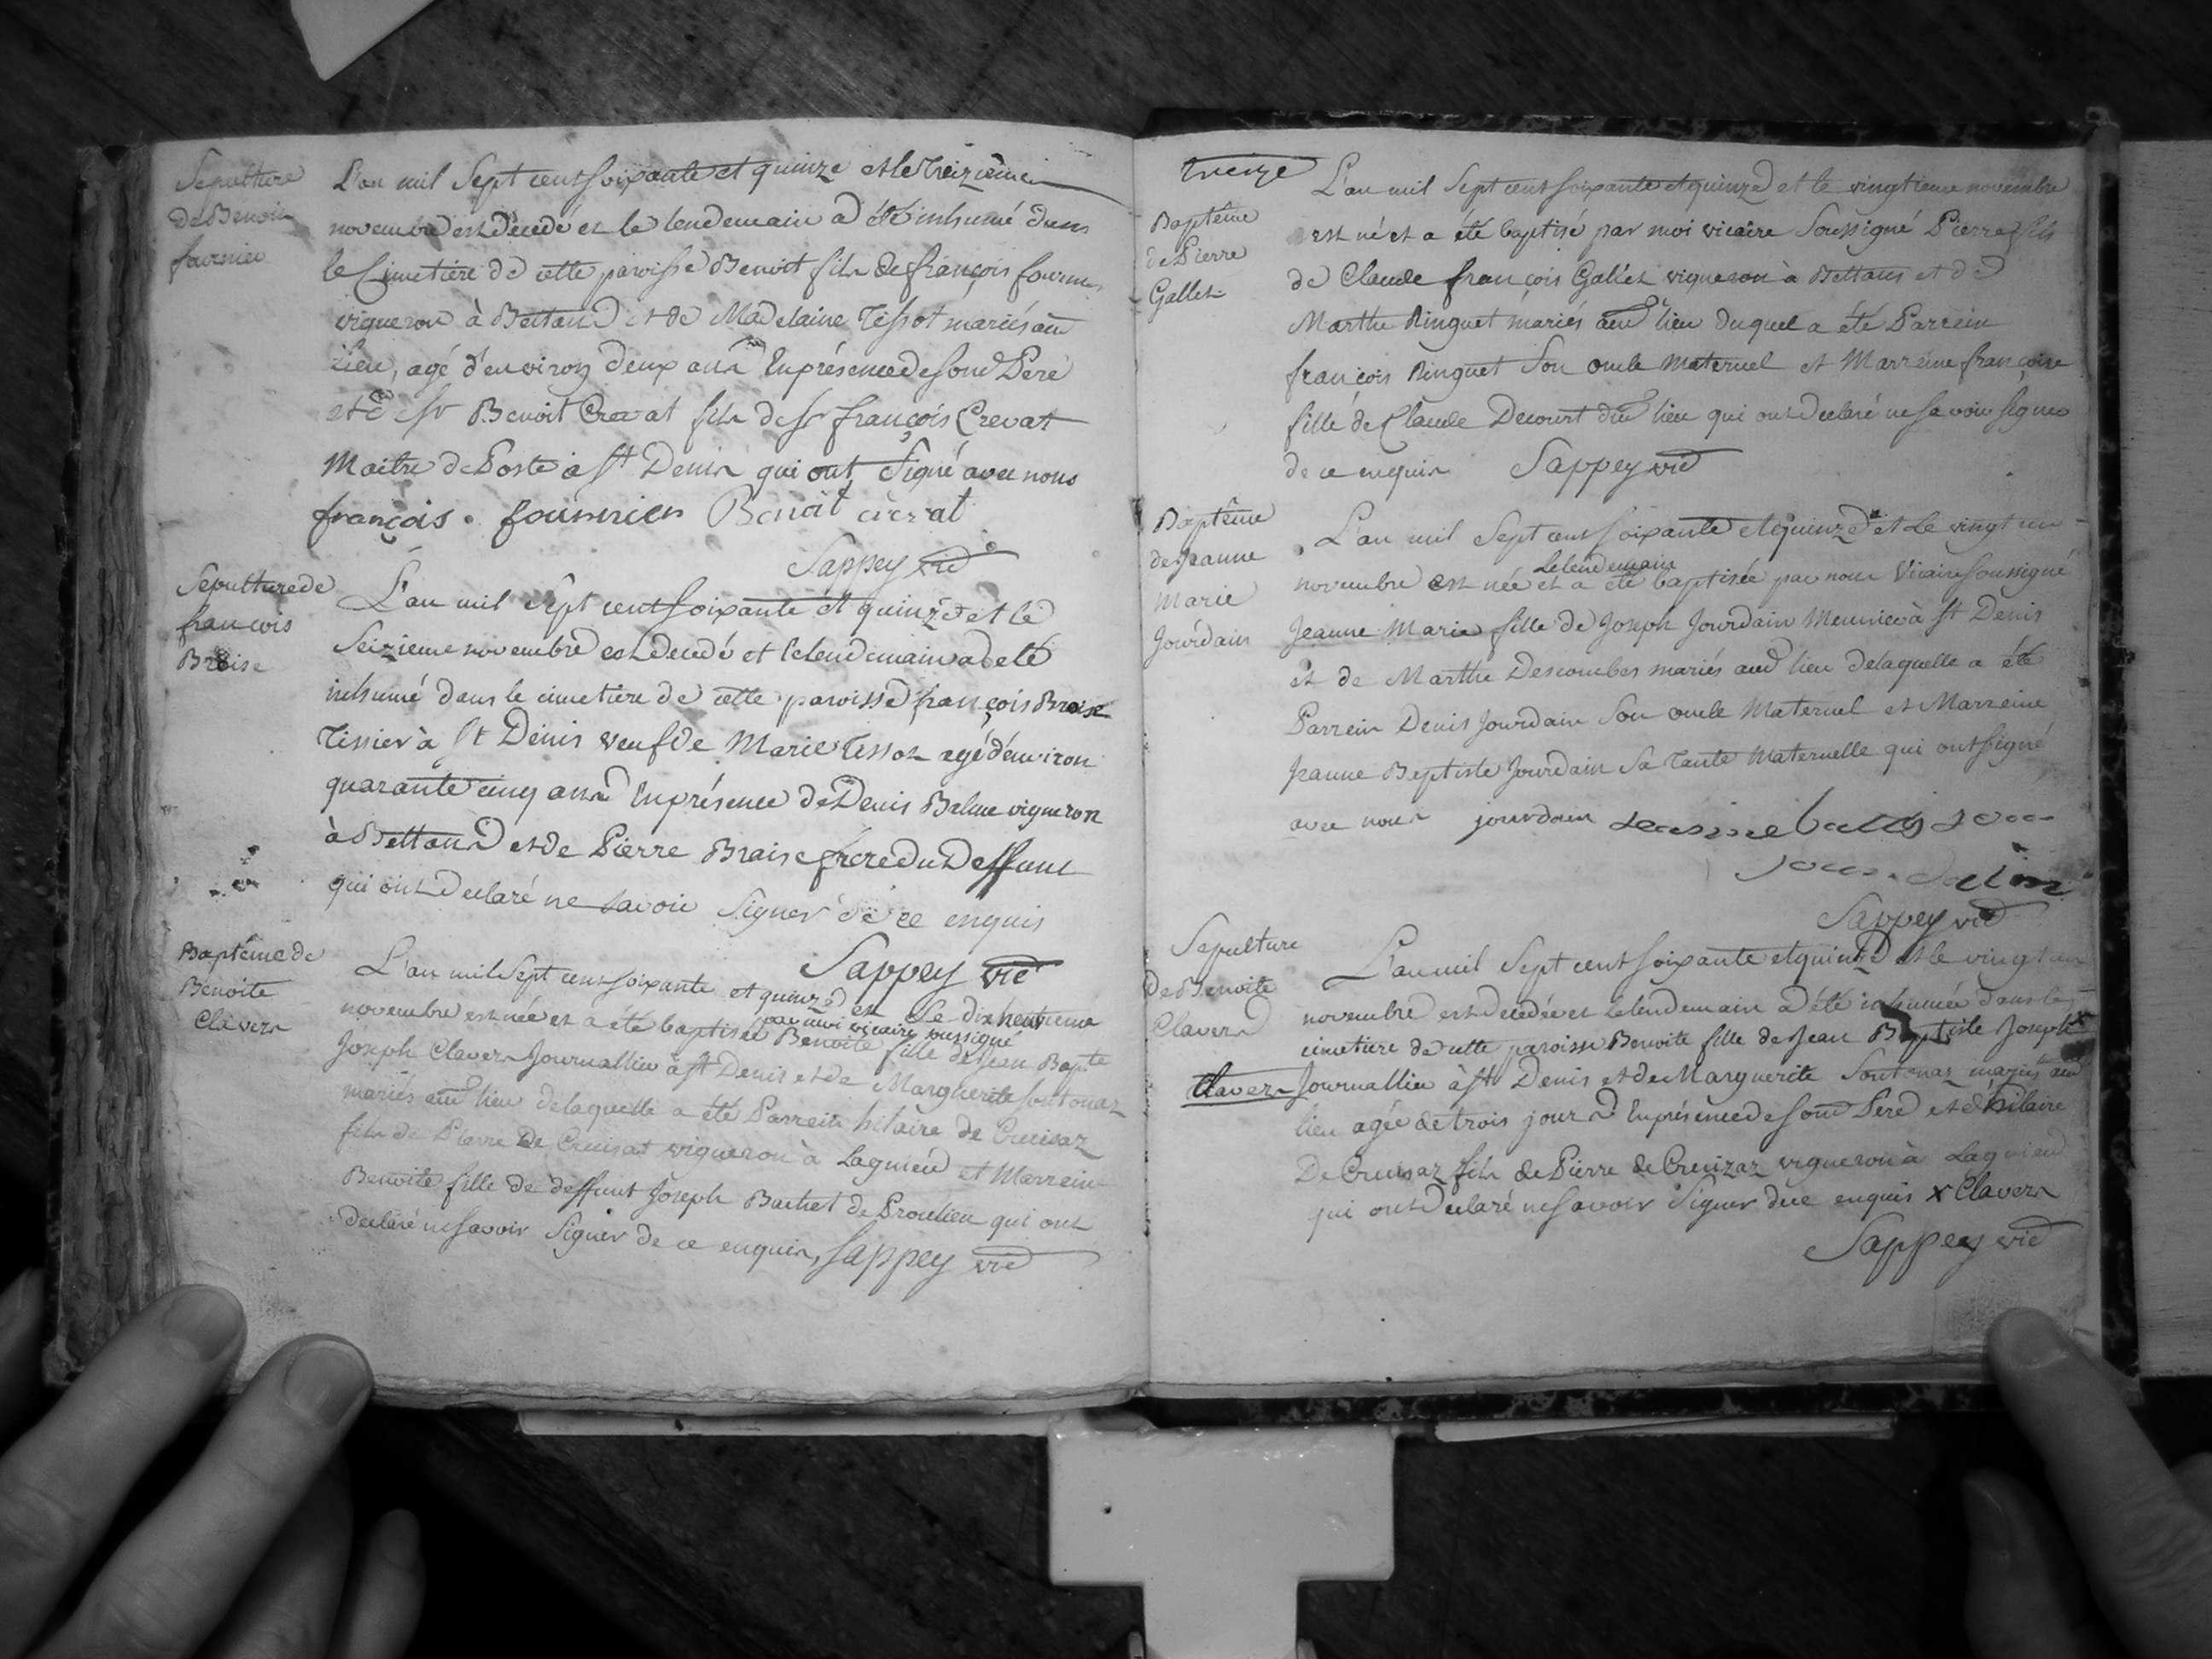 Sepulture
de Benoit
fournier
L'an mil Sept cent soixante et quinze et le treizieme
novembre est décédé et le lendemain a été inhumé dans
le Cimetière de cette paroisse Benoit fils de françois fournier
vigneron à Bettand et de Madelaine Tissot mariés aud
lieu, agé d'environ deux ans En présence de son Pere
et de sr Benoit Crevat fils de sr françois Crevat
Maitre de Poste à St Denis qui ont Signé avec nous
françois . fournier Benoit crevat
Sappey vic
Sepulture de
francois
Braise
L'an mil Sept cent soixante et quinze et le
Seizieme novembre est decedé et le lendemain a eté
inhumé dans le cimetiere de cette paroisse françois Braise
Tissier à St Denis veuf de Marie Tissot agé d'environ
quarante cinq ans En présence de Denis Belme vigneron
à Bettand et de Pierre Braise frere du Deffunt
qui ont Declaré ne savoir Signer de ce enquis
Sappey vic
Baptême de
Benoite
Claver
L'an mil Sept cent soixante et quinze et le dix huitieme
novembre est née et a été baptisée par moi vicaire soussigné Benoite fille de Jean Bapte
Joseph Claver Journallier à St Denis et de Marguerite Soutonaz
mariés aud lieu de laquelle a été Parrein hilaire de Creuisaz
fils de Pierre De Creuisaz vigneron à Lagnieu et Marreine
Benoite fille de deffunt Joseph Bachet de Proulieu qui ont
declaré ne savoir Signer de ce enquis, Sappey vic
treize
Baptême
de Pierre
Gallet
L'an mil Sept cent soixante et quinze et le vingtieme novembre
est né et a été baptisé par moi vicaire Soussigné Pierre fils
de Claude françois Gallet vigneron à Bettans et de
Marthe Ringuet mariés aud lieu duquel a été Parrein
françois Ringuet Son oncle Maternel et Marreine françoise
fille de Claude Decourt dud lieu qui ont declaré ne savoir signer
de ce enquis Sappey vic
Baptême
de Jeanne
Marie
Jourdain
L'an mil Sept cent soixante et quinze et le vingt un
novembre est née et le lendemain a été baptisée par nous Vicaire soussigné
Jeanne Marie fille de Joseph Jourdain Meunier à St Denis
et de Marthe Descombes mariés aud lieu de laquelle a été
Parrein Denis Jourdain Son oncle Maternel et Marreine
Jeanne Baptiste Jourdain Sa Tante Maternelle qui ont signé
avec nous jourdain
Sappey vic
Sepulture
de Benoite
Claver
L'an mil Sept cent soixante et quinze et le vingt un
novembre est decedée et le lendemain a été inhumée dans le
cimetiere de cette paroisse Benoite fille de Jean Baptiste Joseph
Claver Journallier à St Denis et de Marguerite Soutonaz mariés aud
lieu agée de trois jours En présence de son Pere et d'hilaire
De Creuisaz fils de Pierre de Creuizaz vigneron à Lagnieu
qui ont Declaré ne savoir Signer de ce enquis x Claver
Sappey vic